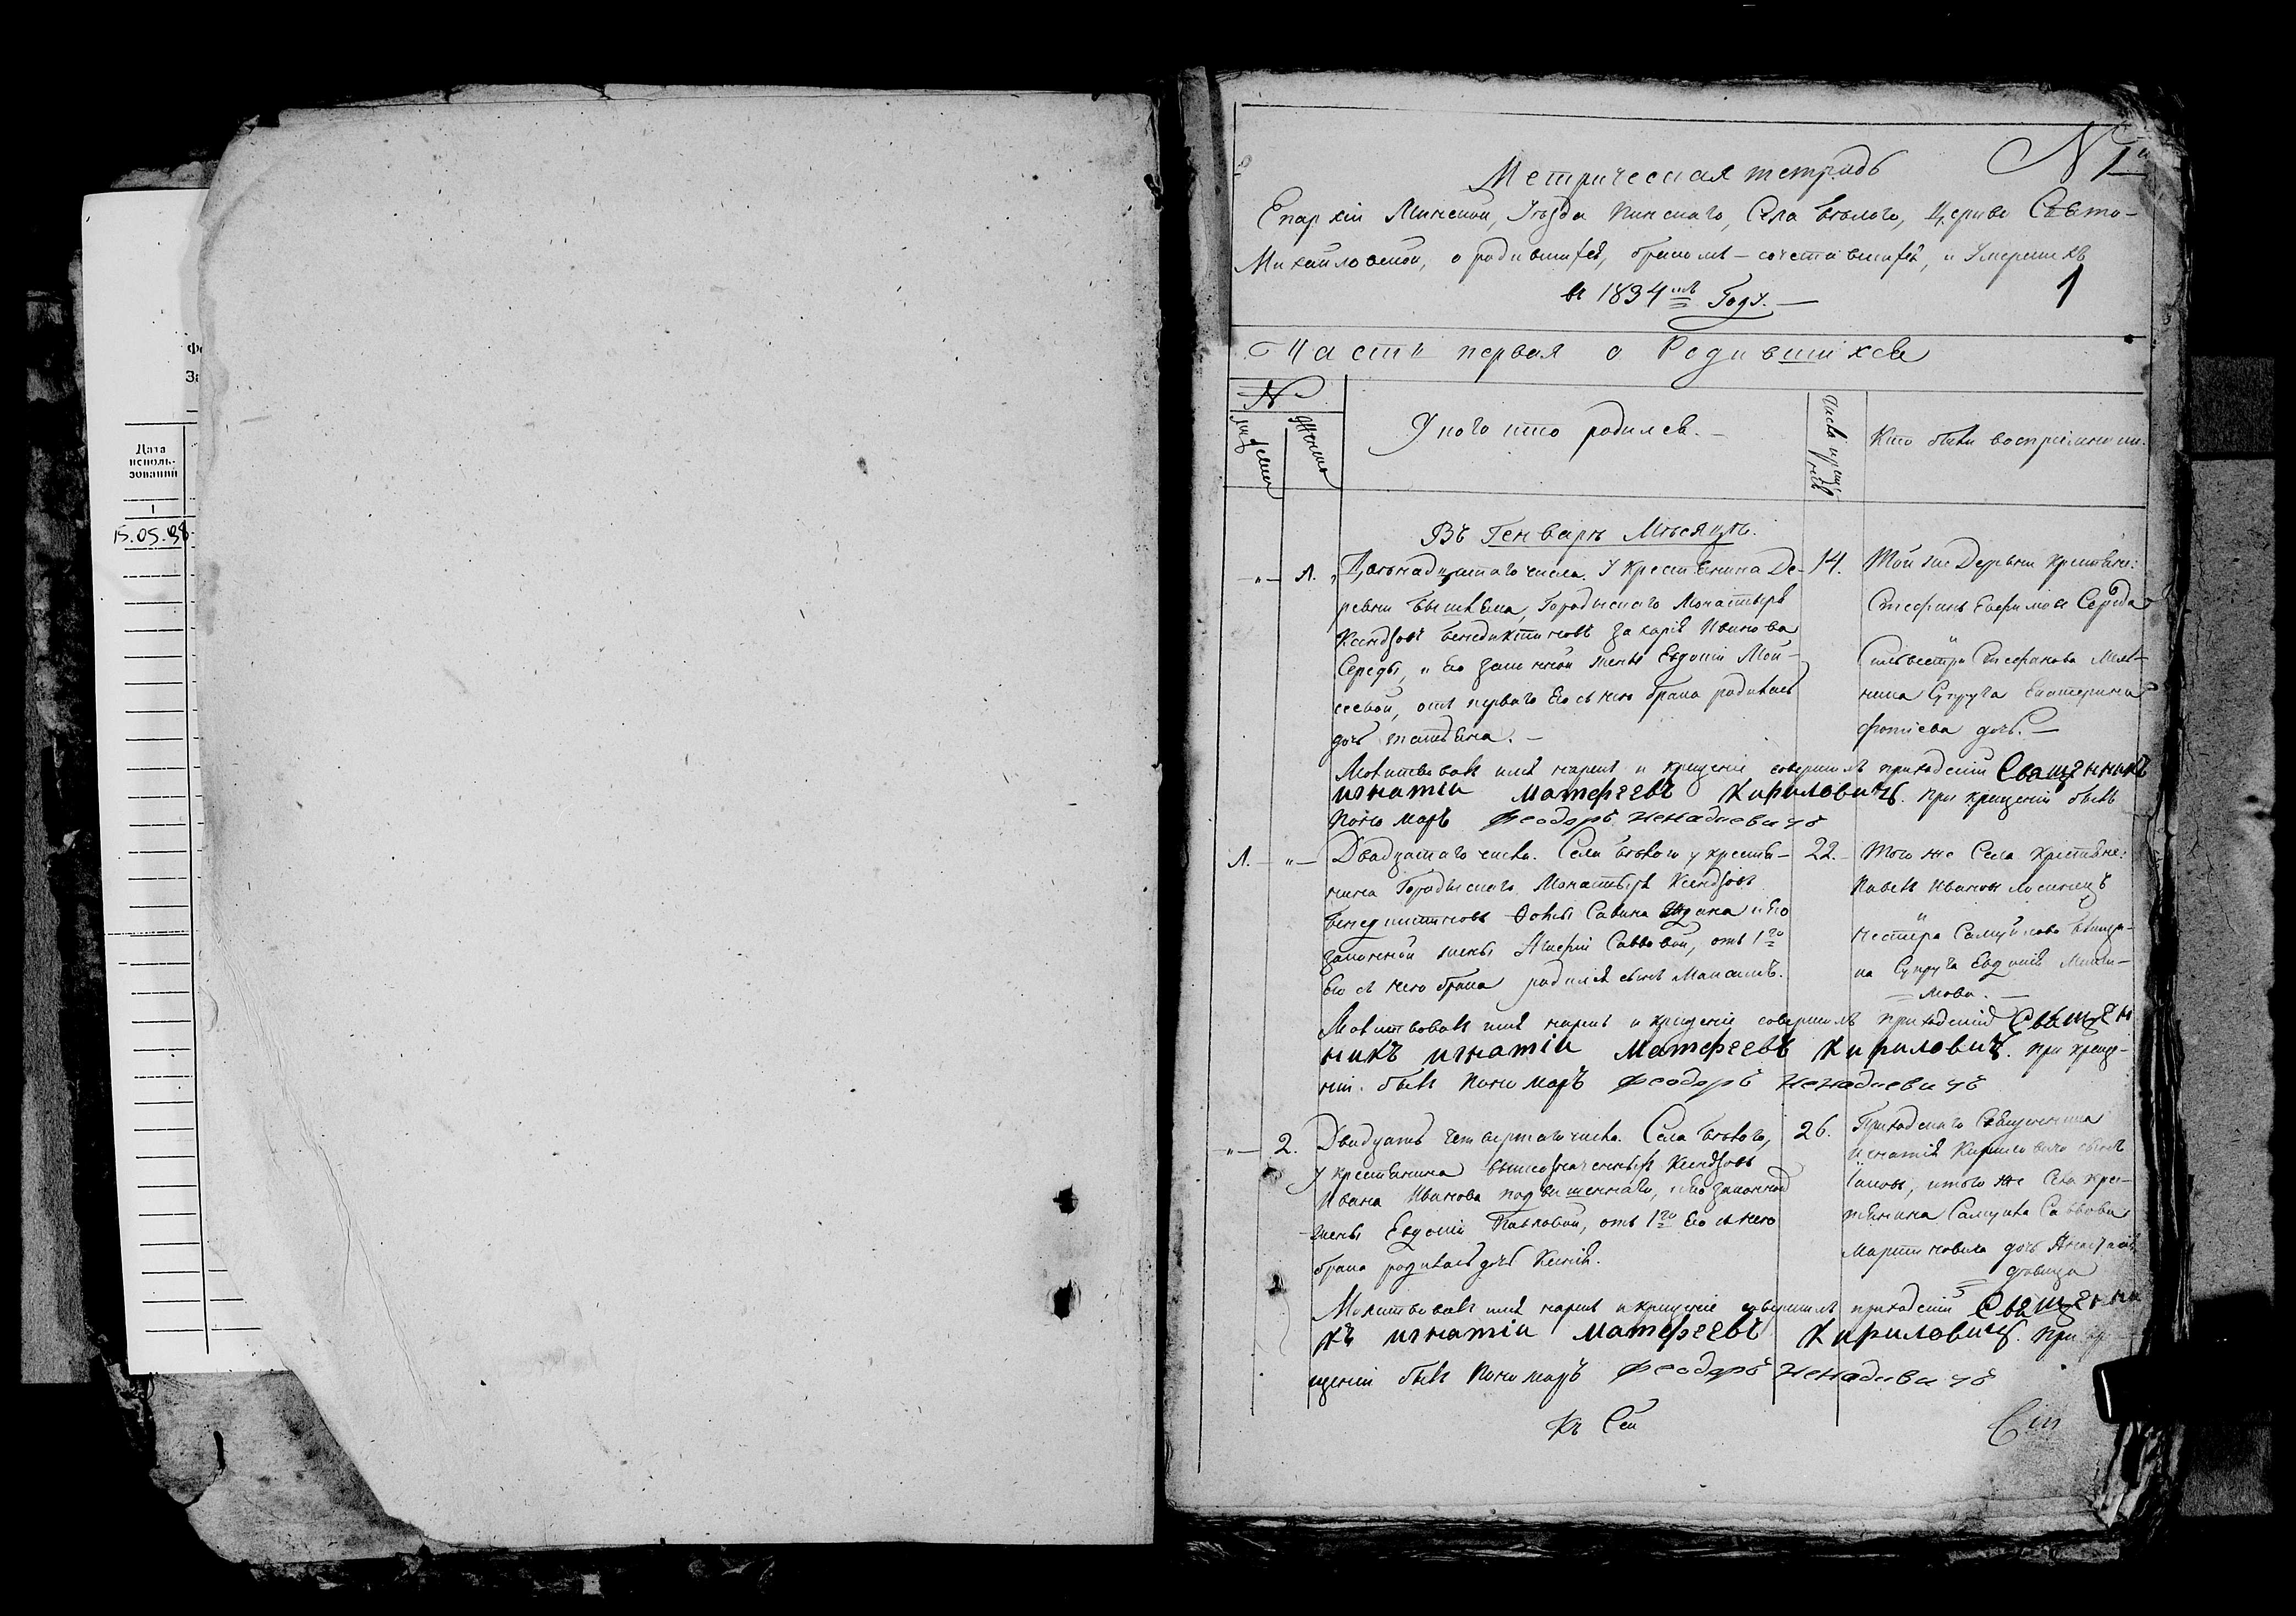 Дата
исполь-
зования
1
15.05.98
№ 1й
Метрическая тетрадь
Епархіи Минской, Уѣзда Пинскаго, Села Бѣлого, Церкви Свято-
Михайловской, о родившихся, бракомъ-сочетавшихся, и Умершихъ
въ 1834мъ Году.
1
Часть первая о Родившихся
№
Женска
У кого кто родился.
Число креще-
нія
Кто были воспріемники.
Въ Генварѣ Мѣсяцѣ.
1.
числа. У Крестянина Де-
ревни Городыскаго Монастыря
Ксендзовъ Бенедиктиновъ Захарія Иванова
Середы, и Его законной жены Евдокіи Мои-
сеевой, отъ перваго Его съ нею брака родилась
дочь Татьяна.
14.
Той же Деревни Крестяне:
Стефанъ Ефимовъ Середа
и
Сильвестра Стефанова Мель-
ника Супруга Екатерина
Фотіева дочь.
Молитвовалъ имя нарекъ и крещеніе совершилъ приходскій Священникъ
игнатіи Матфеевъ Кириловичъ. При крещеніи былъ
Пономарь Феодоръ Ненадкевичъ
1.
Двадцатаго числа. Села Бѣлого у крестя-
нина Городыскаго Монастыря Ксендзовъ
Бенедиктиновъ Фомы Савина и Его
законной жены Саввовой, отъ 1го
Его съ нею брака родился сынъ Максимъ.
22.
Того же Села Крестяне:
Павелъ Ивановъ Лосинецъ
и
Нестера Самуйлова
Супруга Евдокія
Молитвовалъ имя нарекъ и крещеніе совершилъ приходскій Священ
никъ игнатіи Матфеевъ Кириловичъ. При креще-
ніи былъ Пономарь Феодоръ Ненадкевичъ
2.
Двадцать четвертаго числа. Села Бѣлого,
У крестянина вышеозначенныхъ Ксендзовъ
Ивана Иванова и Его законной
жены Евдокіи Павловой, отъ 1го Его съ нею
брака родилась дочь Ксенія.
26.
Приходскаго Священника
Игнатія Кириловича сынъ
Іаковъ, итого же Села кре-
стянина Самуила Саввова
Мартиновича дочь
дѣвица
Молитвовалъ имя нарекъ и крещеніе совершилъ приходскій Священни
къ игнатіи Матфеевъ Кириловичъ. При кре-
щеніи былъ Пономарь Феодоръ Ненадкевичъ
Къ Сей